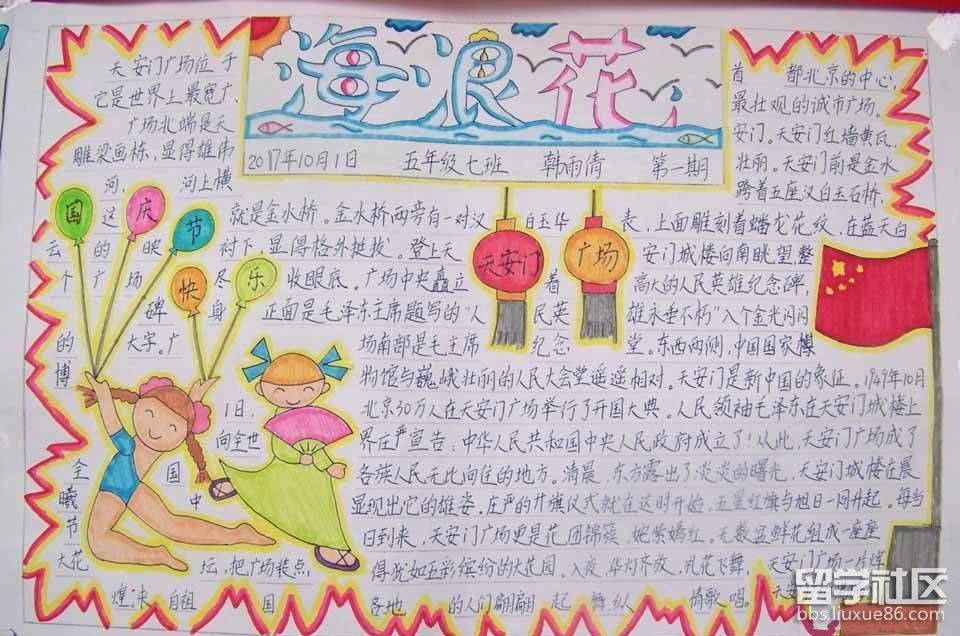 海浪花
2017年10月1日 五年级七班 韩雨倩 第一期
天安门广场位于 首都北京的中心,
它是世界上最宽广、 最壮观的诚市广场。
广场北端是天 安门。天安门红墙黄瓦,
雕梁画栋,显得雄伟 壮丽。天安门前是金水
河,河上横 跨着五座汉白玉石桥,
国 这 庆 节 就是金水桥。金水桥两旁有一对汉 白玉华 表,上面雕刻着蟠龙花纹,在蓝天白
云的映 衬下,显得格外挺拔。登上天 天安门 广场 安门城楼向南眺望,整
个广场 快 尽 乐 收眼底。广场中央矗立 着 高大的人民英雄纪念碑,
碑身 正面是毛泽东主席题写的“人 民英 雄永垂不朽”八个金光闪闪
的大字。广 场南部是毛主席 纪念 堂。东西两侧,中国国家博
博 物馆与巍峨壮丽的人民大会堂遥遥相对。天安门是新中国的象征。1949年10月
1日, 北京30万人在天安门广场举行了开国大典。人民领袖毛泽东在天安门城楼上
向全世 界庄严宣告:中华人民共和国中央人民政府成立了!从此,天安门广场成了
全国 各族人民无比向往的地方。清晨,东方露出了淡淡的曙光,天安门城楼在晨
曦中 显现出它的雄姿,庄严的升旗仪式就在这时开始,五星红旗与旭日一同升起。每当
节 日到来,天安门广场更是花团锦簇,姹紫嫣红。无数盆鲜花组成一座座
大花 坛,把广场装点 得犹如五彩缤纷的大花园。入夜,华灯齐放,礼花飞舞,天安门广场一片辉
煌。来自祖国 各地的人们翩翩起舞,纵情歌唱。天安
留学社区
bbs.liuxue86.com